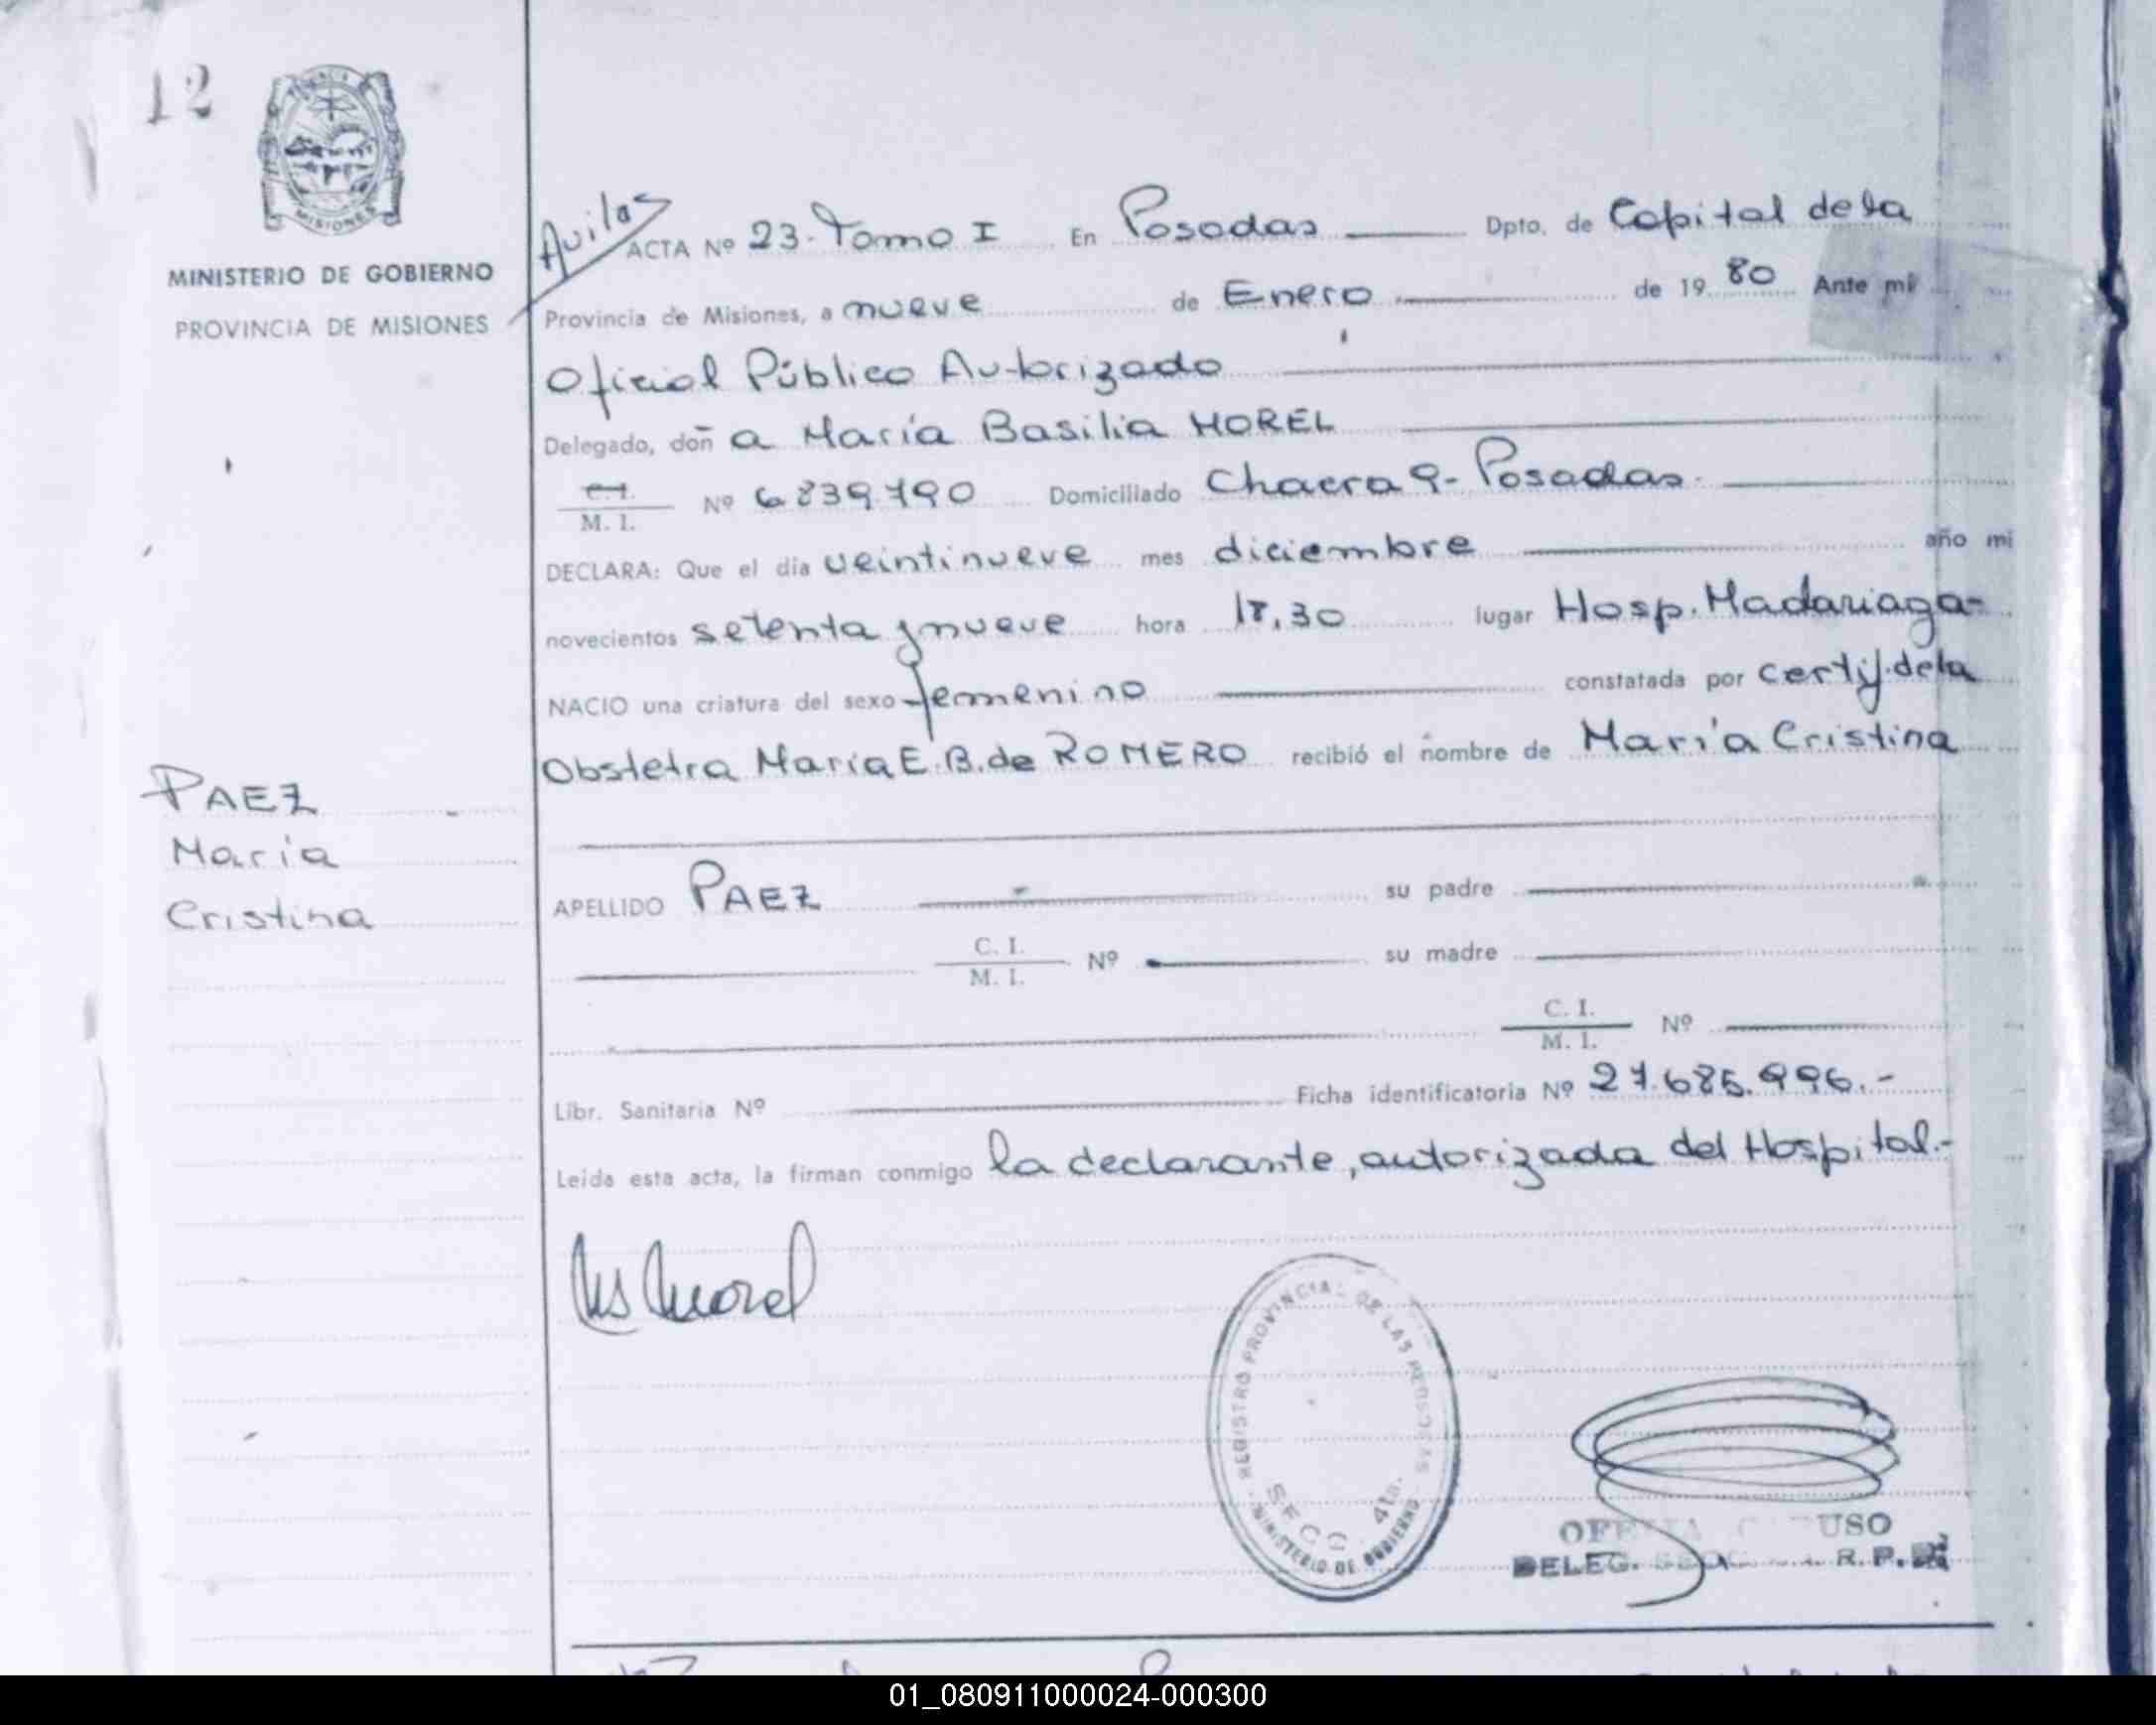 12
MISIONES
MINISTERIO DE GOBIERNO
PROVINCIA DE MISIONES
Avilas
ACTA Nº 23. Tomo I En Posadas Dpto. de Capital de la
Provincia de Misiones, a nueve de Enero de 19 80 Ante mi
Oficial Público Autorizado
Delegado, doñ a María Basilia MOREL
C.I. M. I. Nº 6.839.790 Domiciliado Chacra 9- Posadas.
DECLARA: Que el día veintinueve mes diciembre año mi
novecientos setenta y nueve hora 18,30 lugar Hosp. Madariaga-
NACIO una criatura del sexo femenino constatada por certif. de la
Obstetra María E. B. de ROMERO recibió el nombre de María Cristina
PAEZ
María
Cristina
APELLIDO PAEZ su padre
C. I. M. I. Nº su madre
C. I. M. I. Nº
Libr. Sanitaria Nº Ficha identificatoria Nº 27.685.996.-
Leída esta acta, la firman conmigo la declarante, autorizada del Hospital.-
Morel
REGISTRO PROVINCIAL DE LAS PERSONAS
SECC. 4ta.
MINISTERIO DE GOBIERNO
USO
DELEG. R. P.
01_080911000024-000300